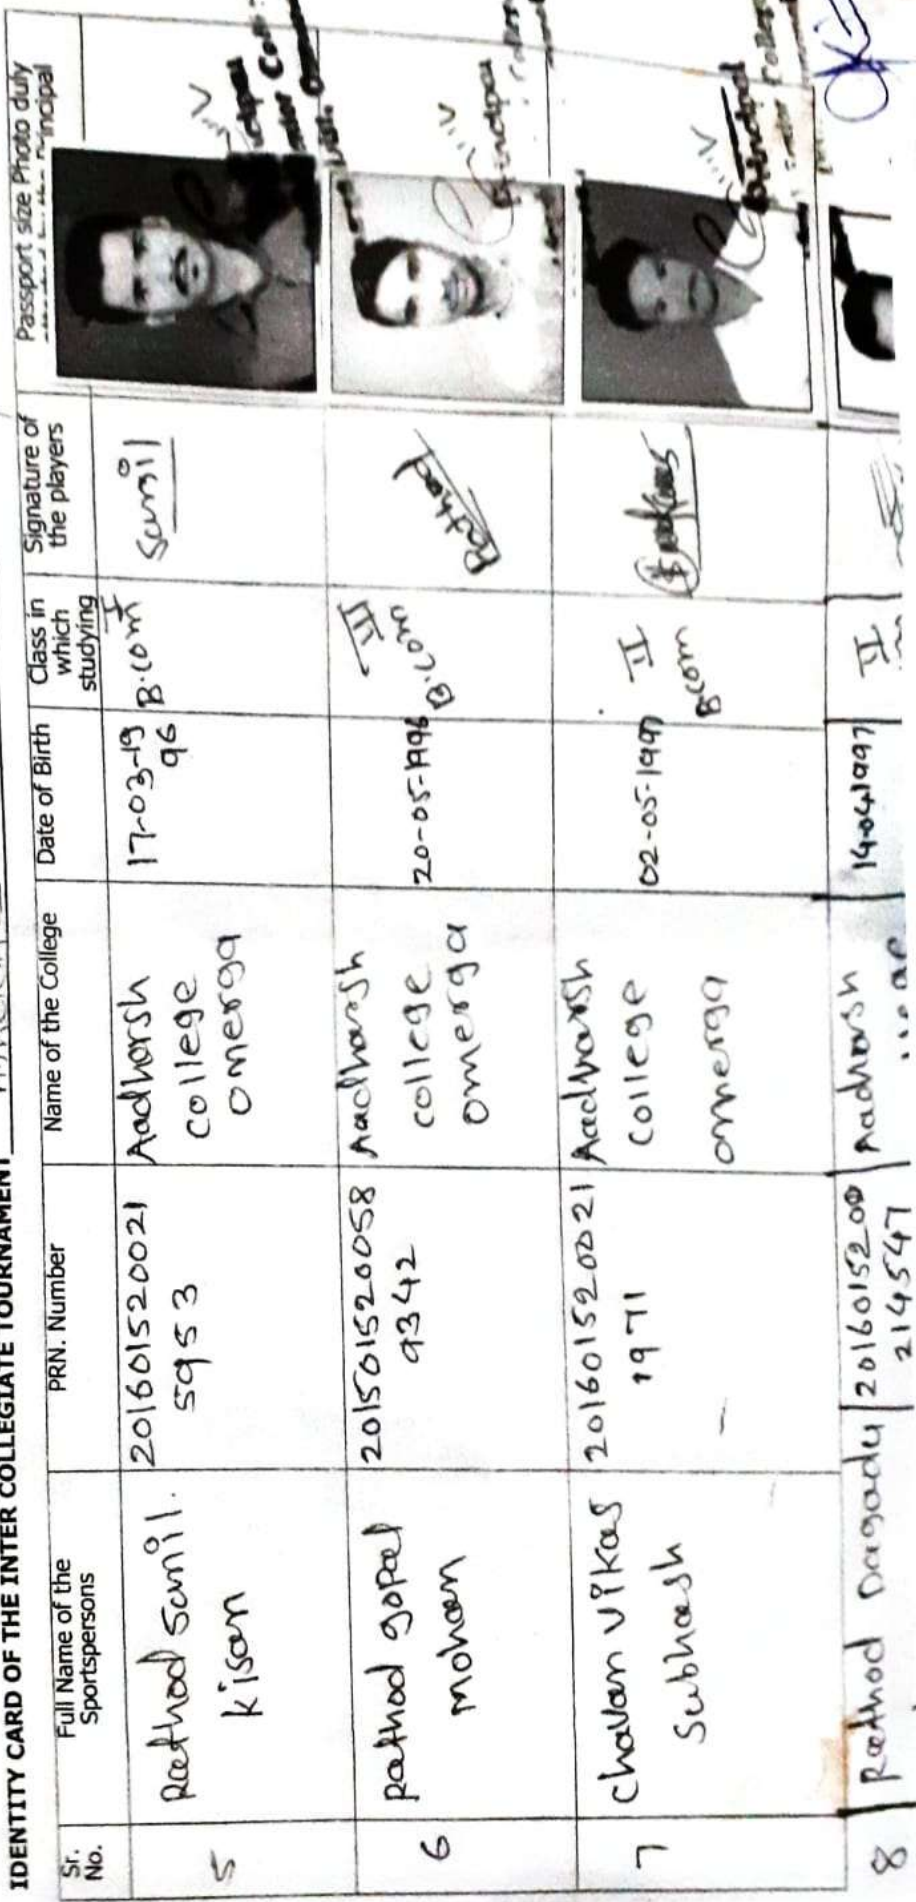 IDENTITY CARD OF THE INTER COLLEGIATE TOURNAMENT
Sr. No.
Full Name of the Sportspersons
PRN. Number
Name of the College
Date of Birth
Class in which studying
Signature of the players
Passport size Photo duly
5
Rathod Sunil.
Kisan
201601520021
5953
Aadharsh
college
omerga
17-03-19
96
B.com I
Sunil
Principal
6
Rathod gopal
Mohan
201501520058
9342
Aadharsh
college
omerga
20-05-1996
III
B.com
Rathod
Principal
7
Chavan Vikas
Subhash
201601520021
1971
Aadharsh
college
omerga
02-05-1997
II
Bcom
Principal
8
Rathod Dagadu
2016015200
214547
Aadharsh
14-04-1997
II